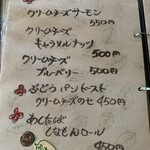 クリームチーズサーモン
550円
クリームチーズ
キャラメルナッツ
500円
クリームチーズ
ブルーベリー 500円
ぶどうパントースト
クリームチーズのせ 450円
あしたば
しなもんロール
450円